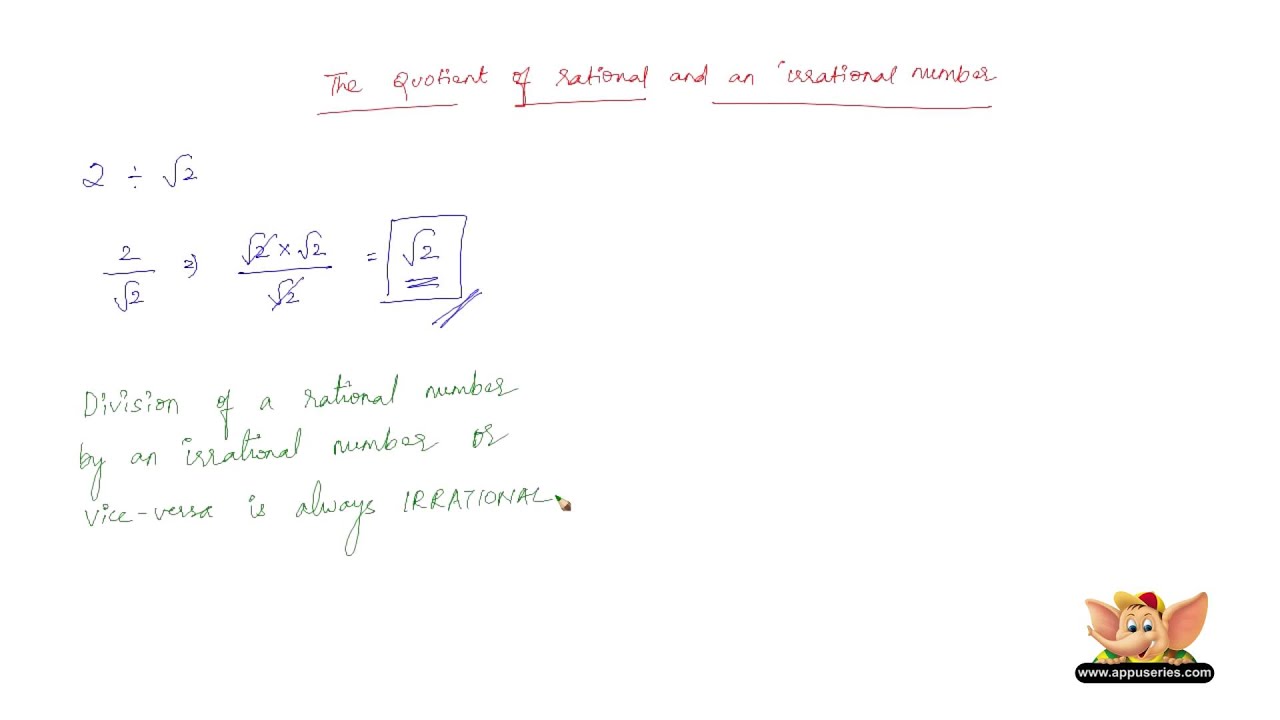 The Quotient of rational and an irrational number
2 ÷ √2
2/√2 ⇒ (√2 × √2)/√2 = √2
Division of a rational number
by an irrational number or
vice-versa is always IRRATIONAL
www.appuseries.com